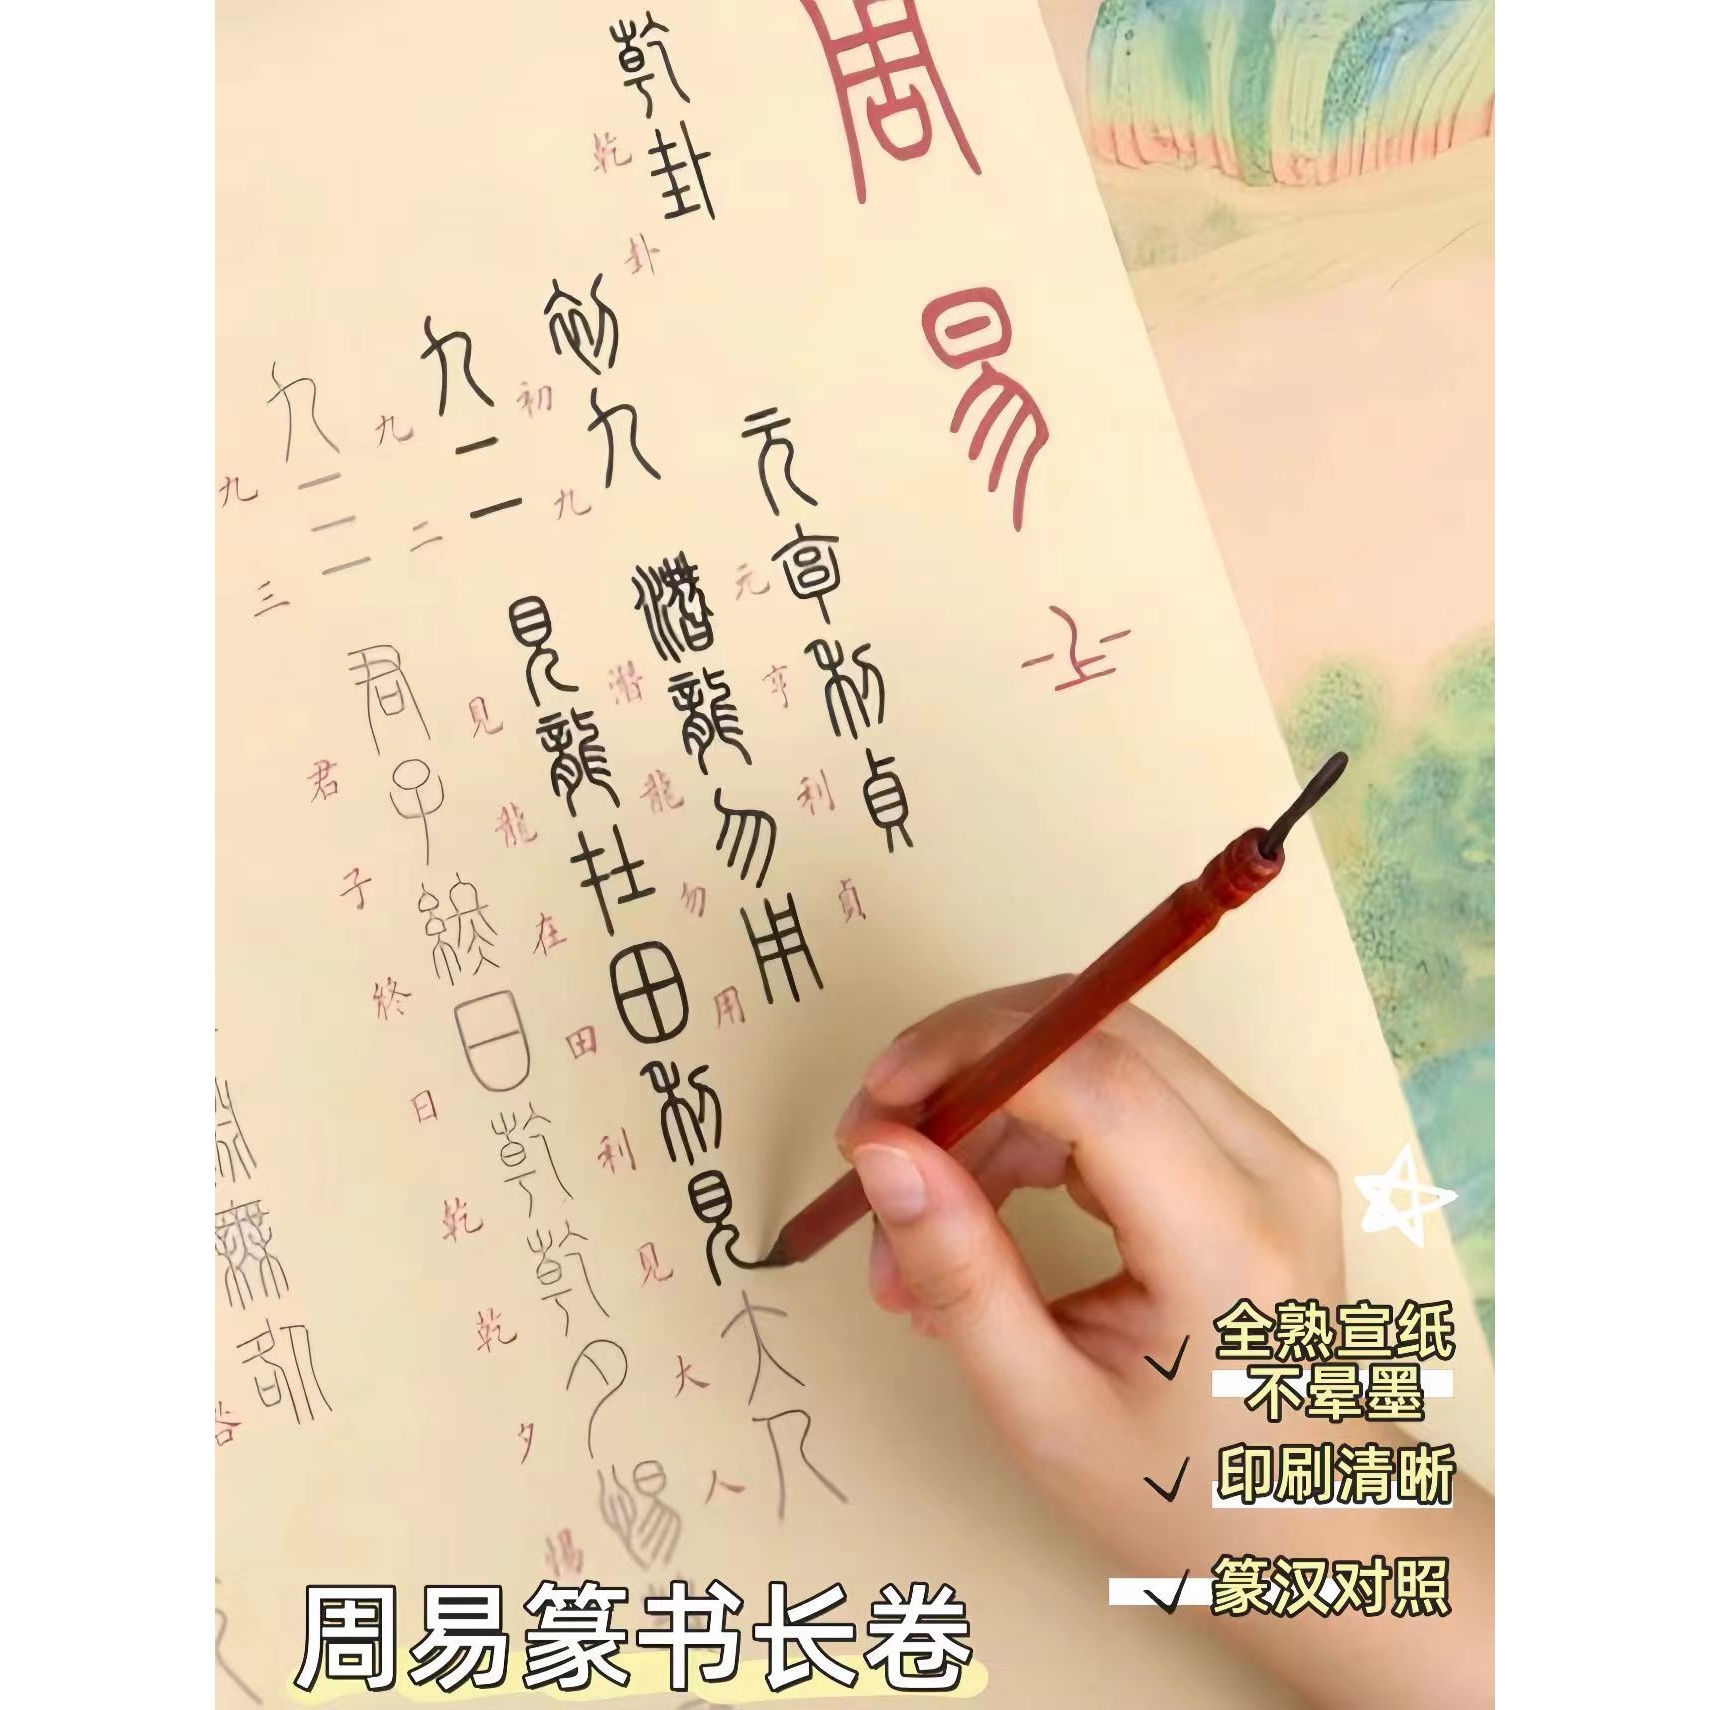 周易
乾卦
乾卦
元亨利貞
元亨利貞
初九 潛龍勿用
初九 潛龍勿用
九二 見龍在田利見大人
九二 見龍在田利見大人
九三 君子終日乾乾夕惕
九三 君子終日乾乾夕惕
無咎
咎
全熟宣纸
不晕墨
印刷清晰
篆汉对照
周易篆书长卷